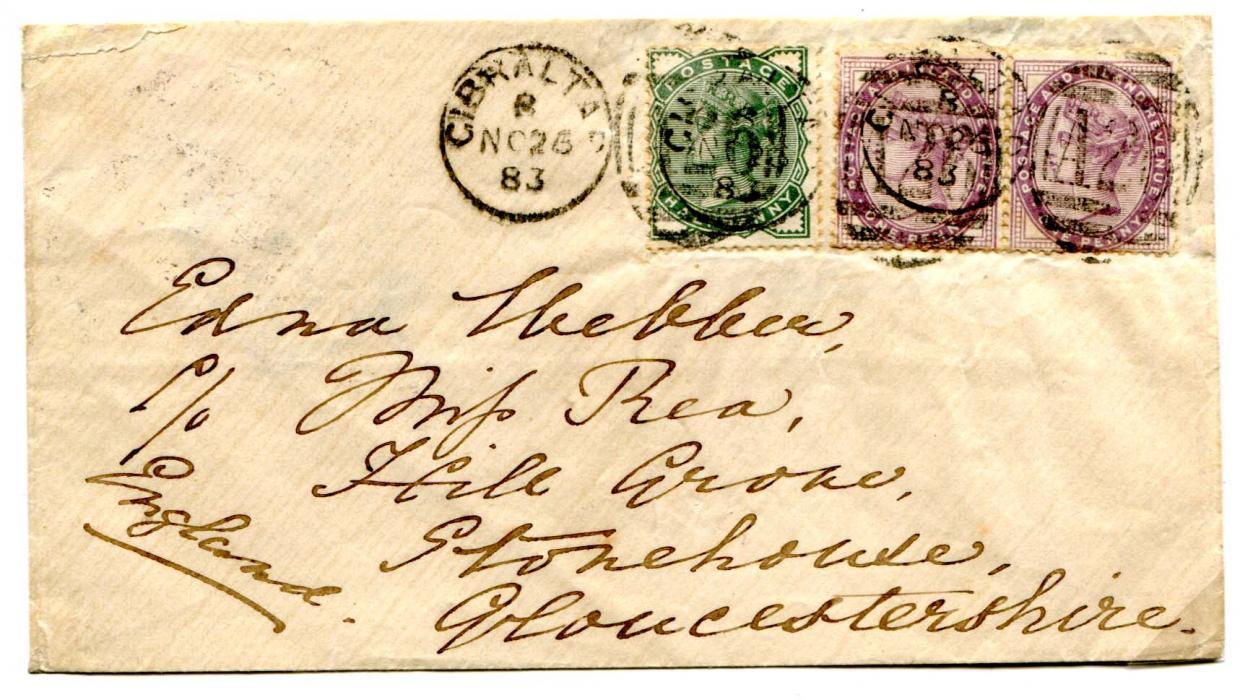 GIBRALTAR
B
NO 26
83
POSTAGE
HALFPENNY
B
83
POSTAGE AND INLAND REVENUE
ONE PENNY
B
83
POSTAGE AND INLAND REVENUE
PENNY
Edna Webber,
C/o Miss Rea,
Hill Grove,
Stonehouse,
Gloucestershire.
England.